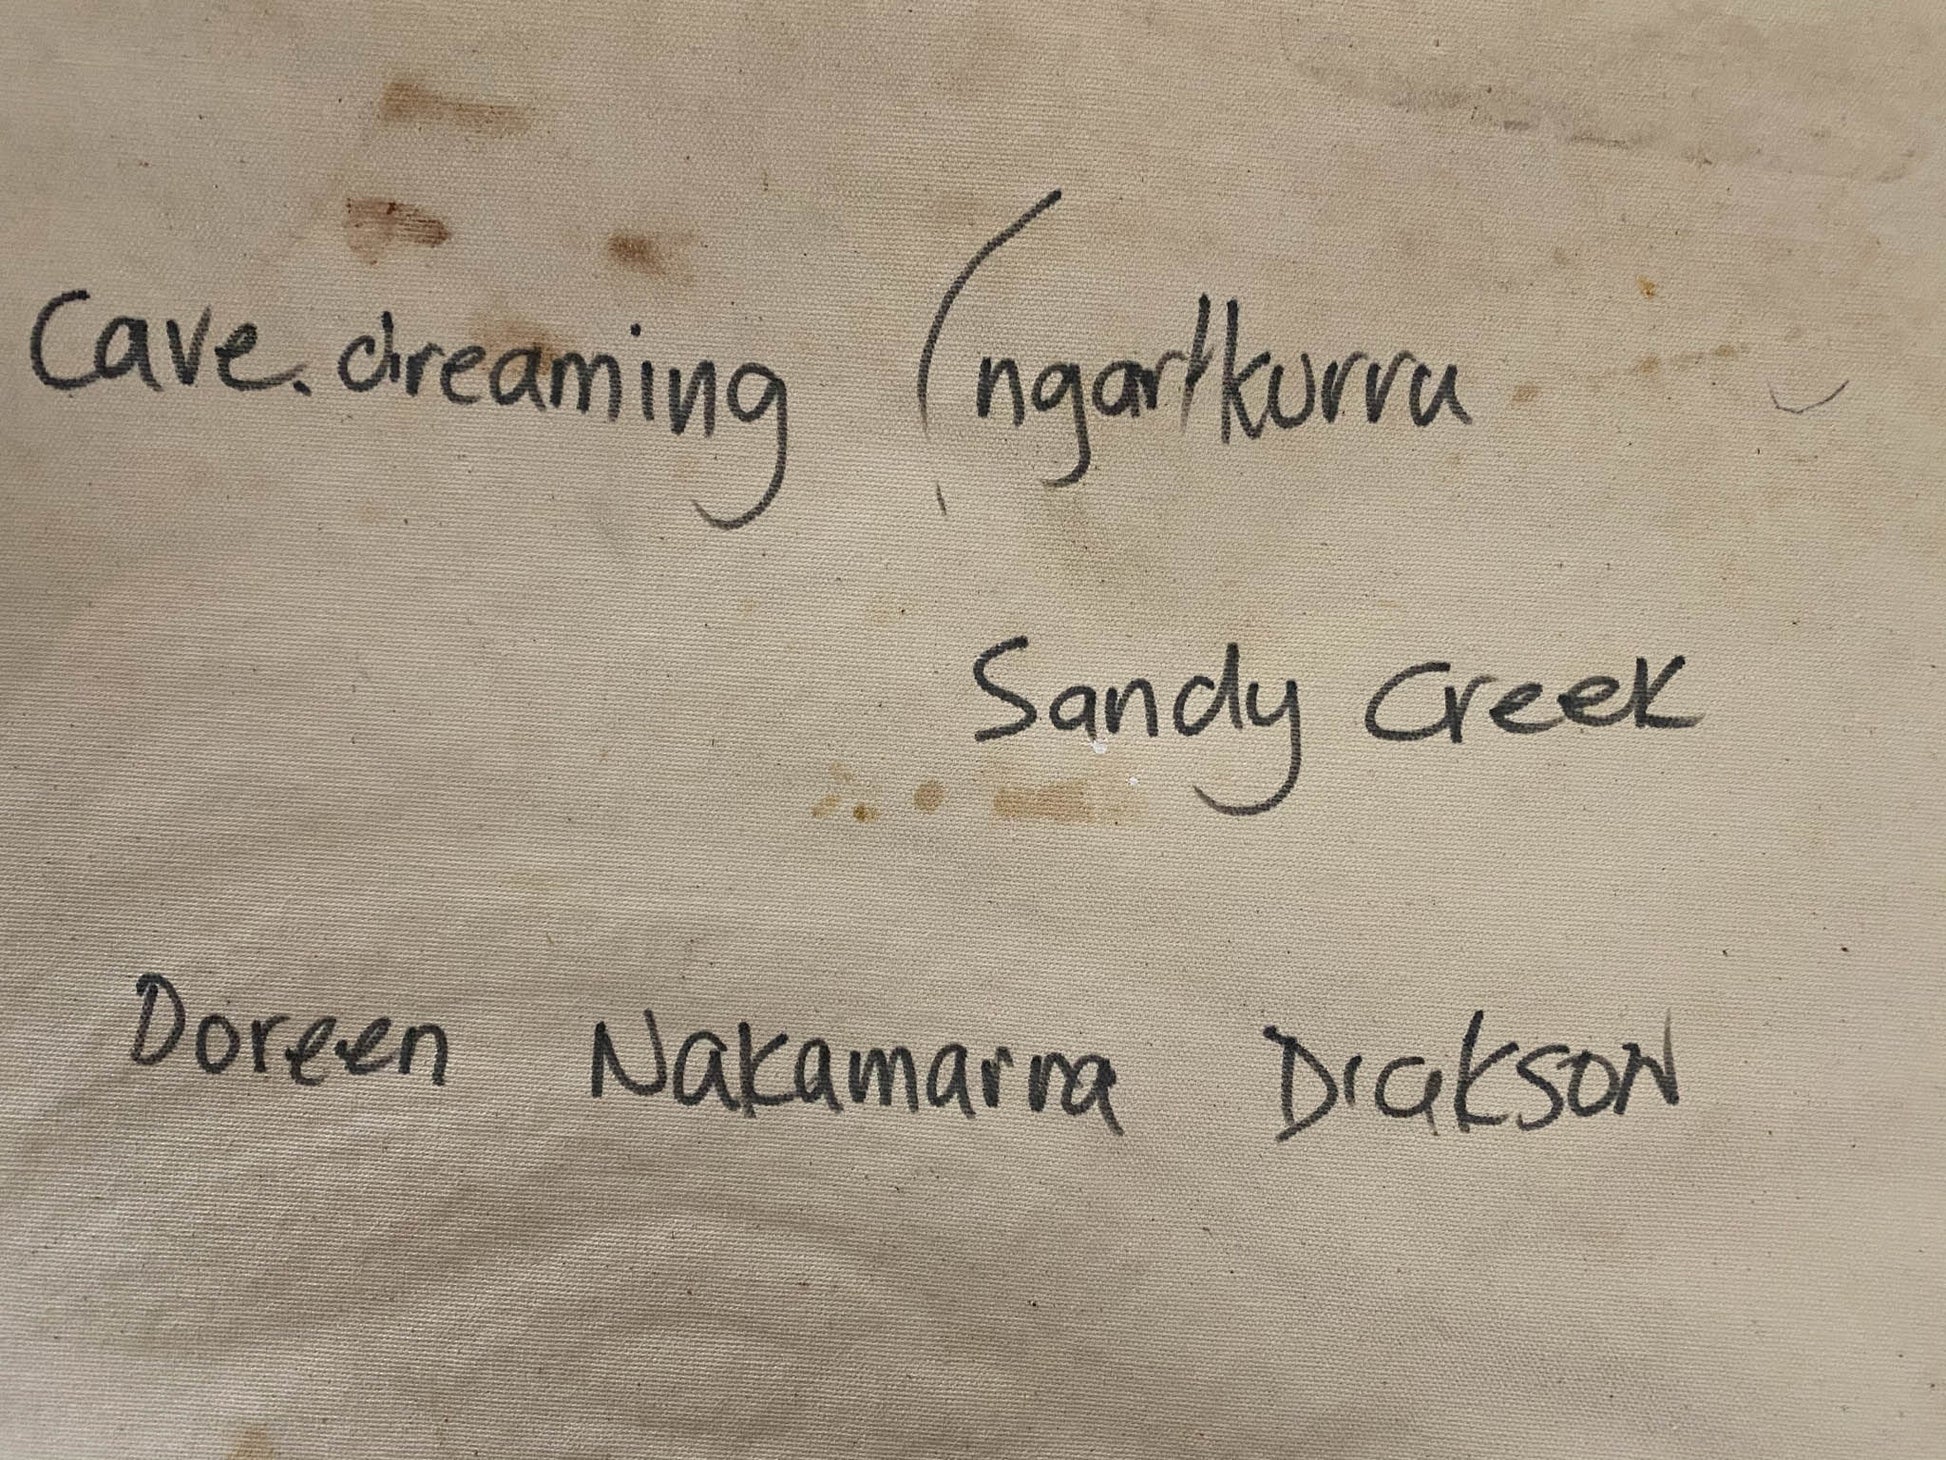 Cave. dreaming (ngarlkurra
Sandy Creek
Doreen Nakamarra Dickson